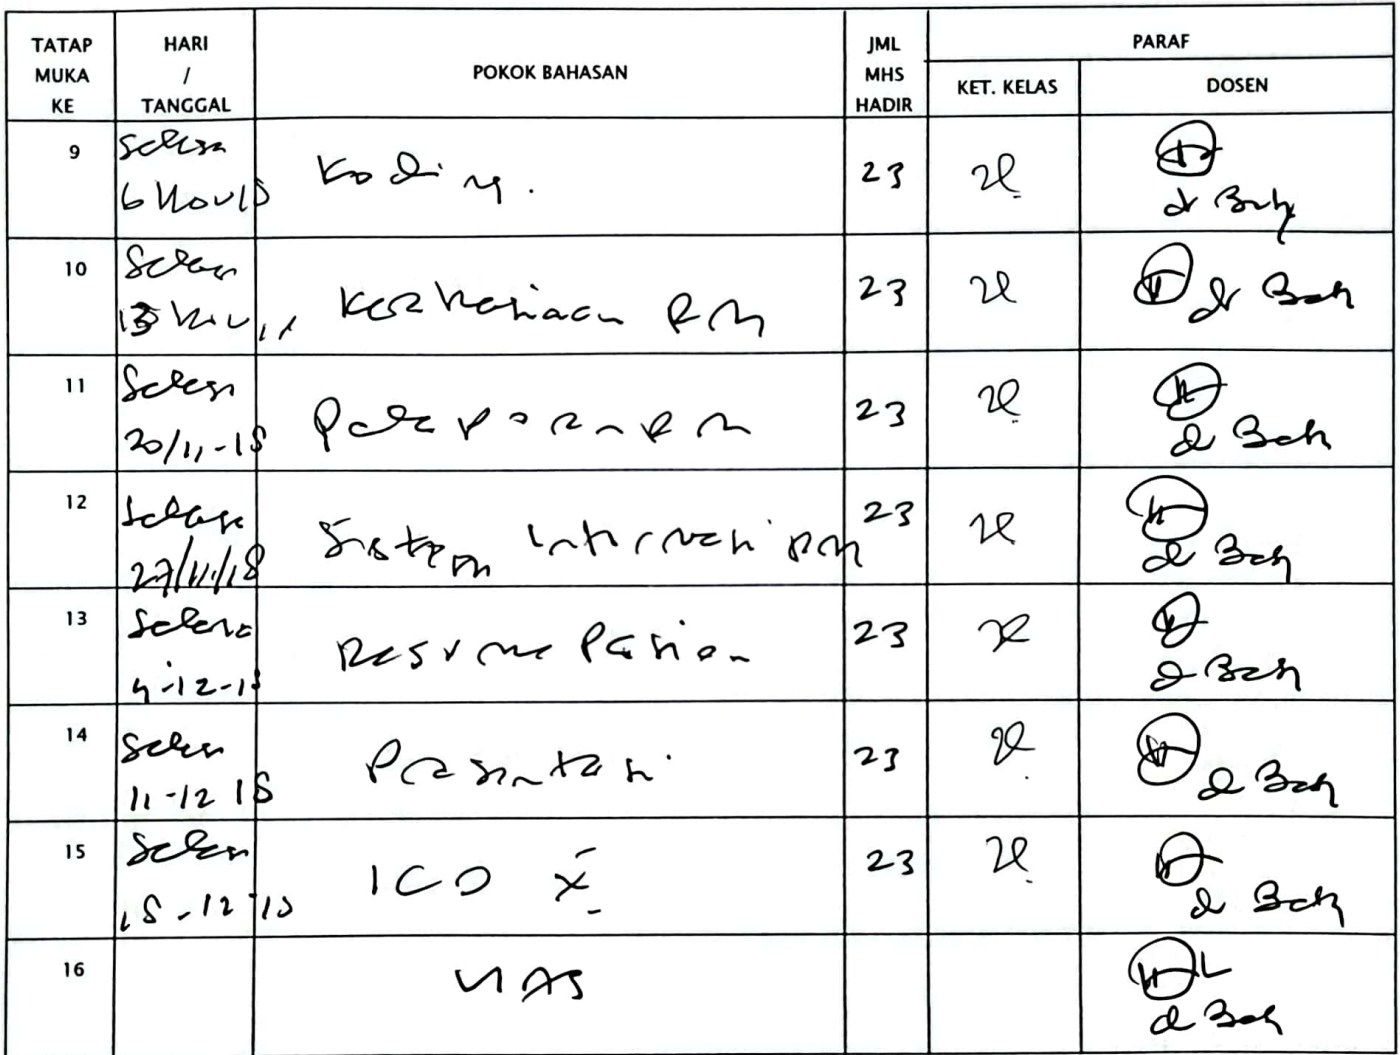 TATAP MUKA KE HARI / TANGGAL POKOK BAHASAN JML MHS HADIR PARAF
KET. KELAS DOSEN
9 Selasa 6 Nov 18 Koding. 23
10 Selasa 13 Nov Kerahasiaan RM 23
11 Selasa 20/11-18 Pelaporan RM 23
12 Selasa 27/11/18 Sistem Informasi RM 23
13 Selasa 4-12-18 Resume Pasien 23
14 Selasa 11-12 18 Presentasi 23
15 Selasa 18-12-18 ICD X 23
16 UAS